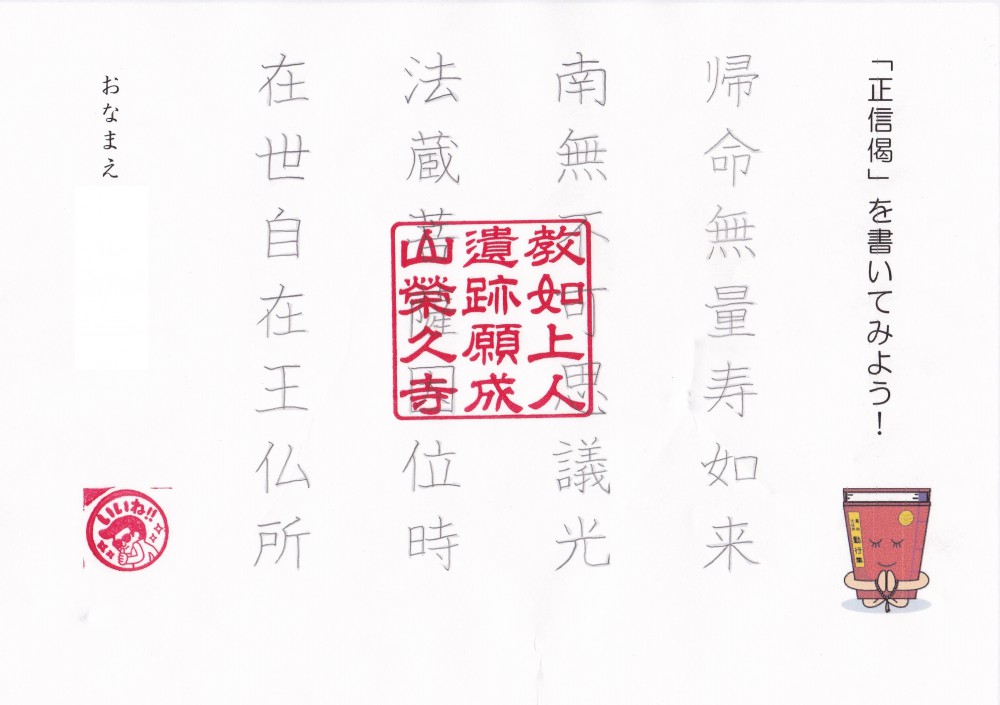 「正信偈」を書いてみよう！
帰命無量寿如来
南無不可思議光
法蔵菩薩因位時
在世自在王仏所
おなまえ
教如上人
遺跡願成
山榮久寺
勤行集
いいね!!